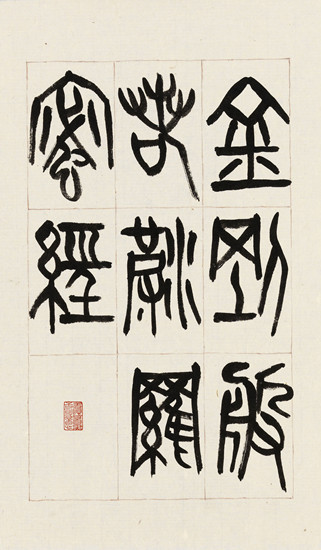 金剛般
若波羅
蜜經